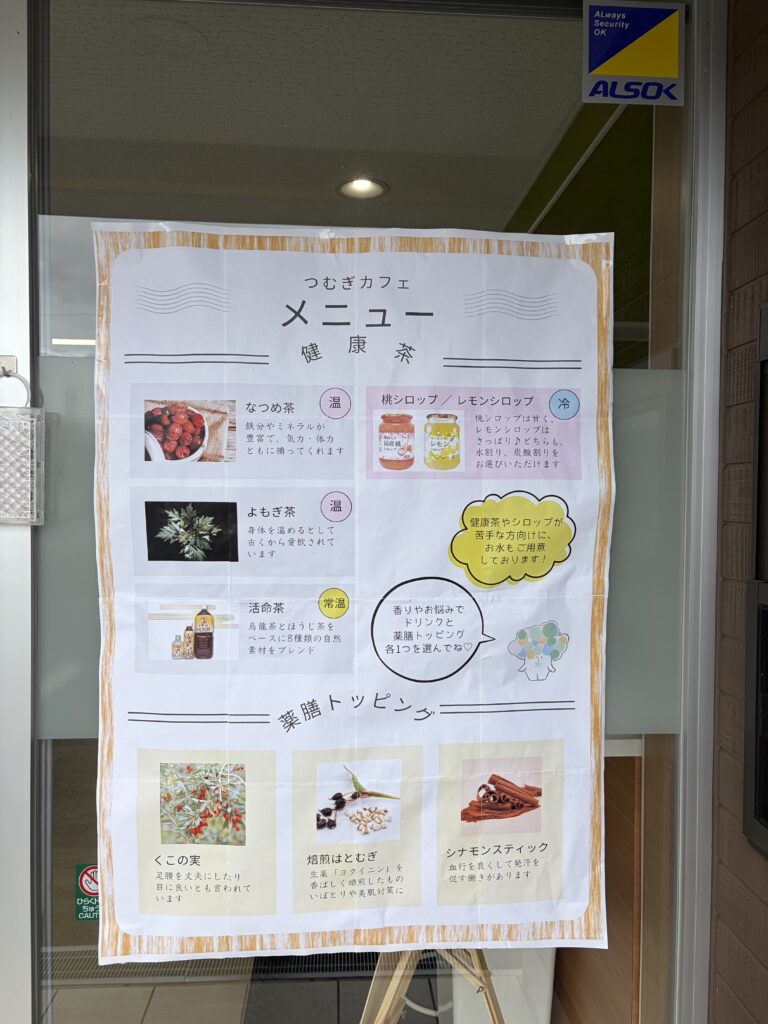 ALways
Security
OK
ALSOK
つむぎカフェ
メニュー
健康茶
なつめ茶
温
鉄分やミネラルが
豊富で、気力・体力
ともに補ってくれます
桃シロップ / レモンシロップ
冷
国産桃
レモン
桃シロップは甘く、
レモンシロップは
さっぱり♪どちらも、
水割り、炭酸割りを
お選びいただけます
よもぎ茶
温
身体を温めるとして
古くから愛飲されて
います
健康茶やシロップが
苦手な方向けに、
お水もご用意
しております!
活命茶
常温
烏龍茶とほうじ茶を
ベースに8種類の自然
素材をブレンド
香りやお悩みで
ドリンクと
薬膳トッピング
各1つを選んでね♡
薬膳トッピング
くこの実
足腰を丈夫にしたり
目に良いとも言われて
います
焙煎はとむぎ
生薬「ヨクイニン」を
香ばしく焙煎したもの
いぼとりや美肌対策に
シナモンスティック
血行を良くして発汗を
促す働きがあります